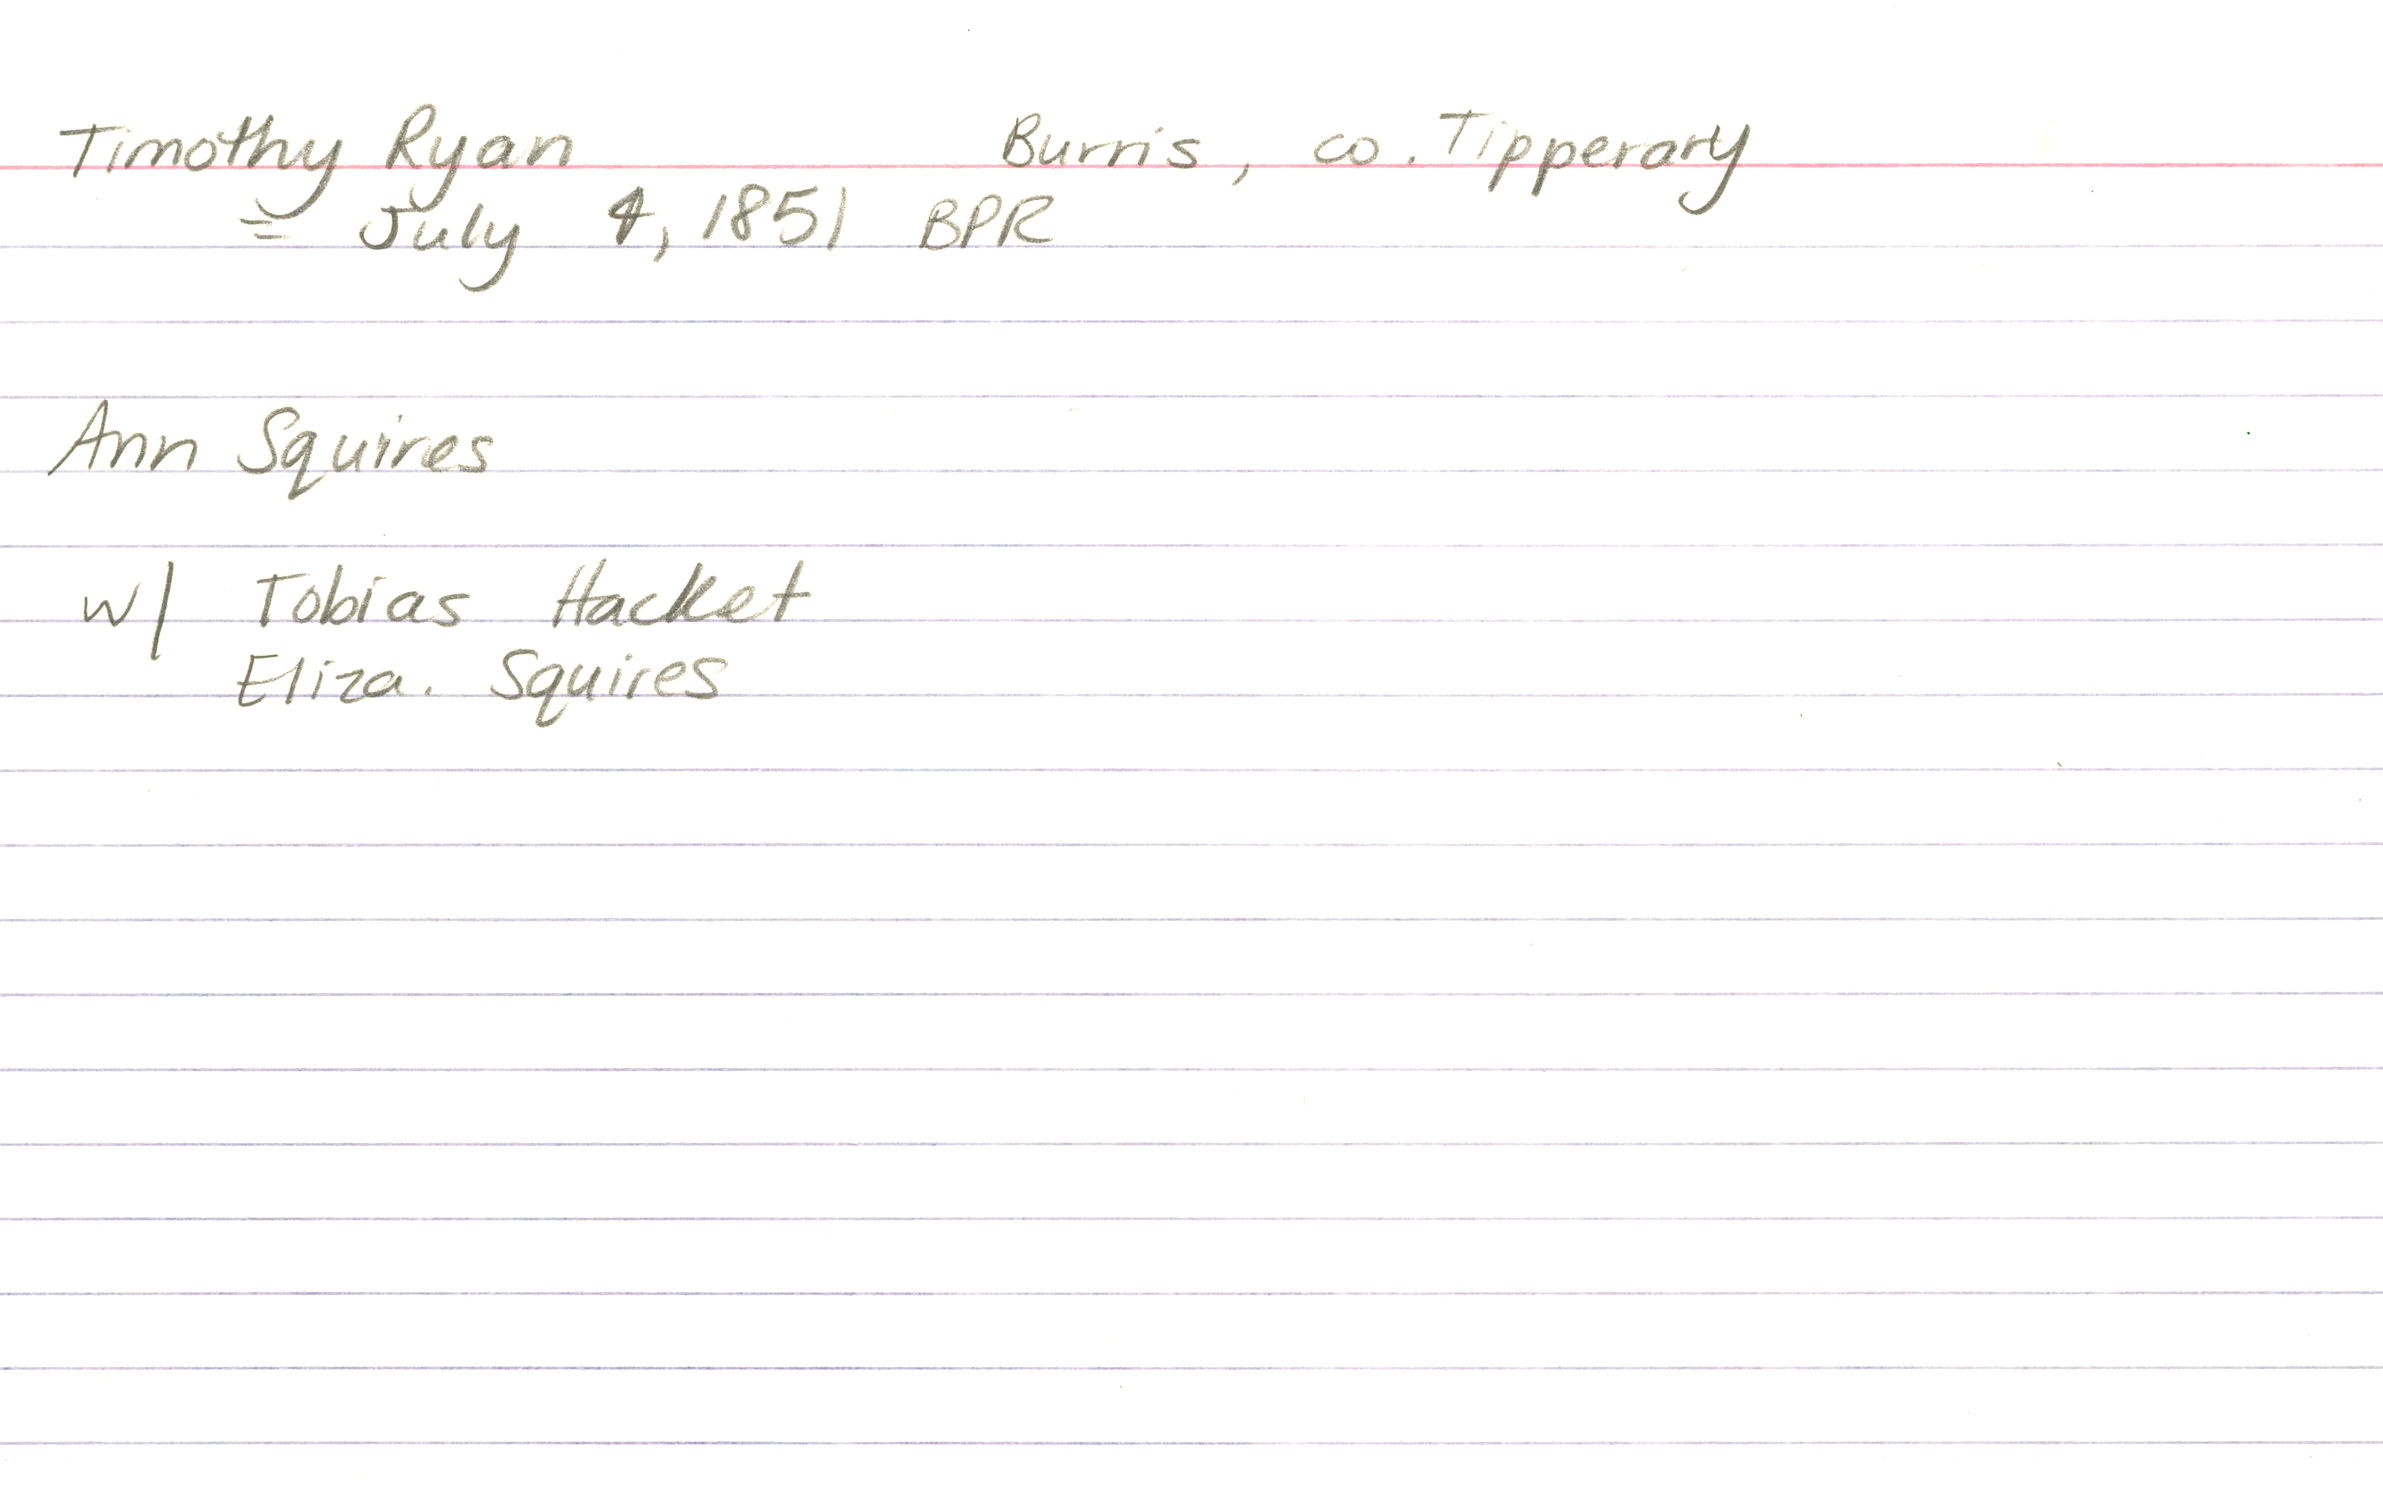 Timothy Ryan Burris, co. Tipperary
= July 4, 1851 BPR
Ann Squires
w/ Tobias Hacket
Eliza. Squires